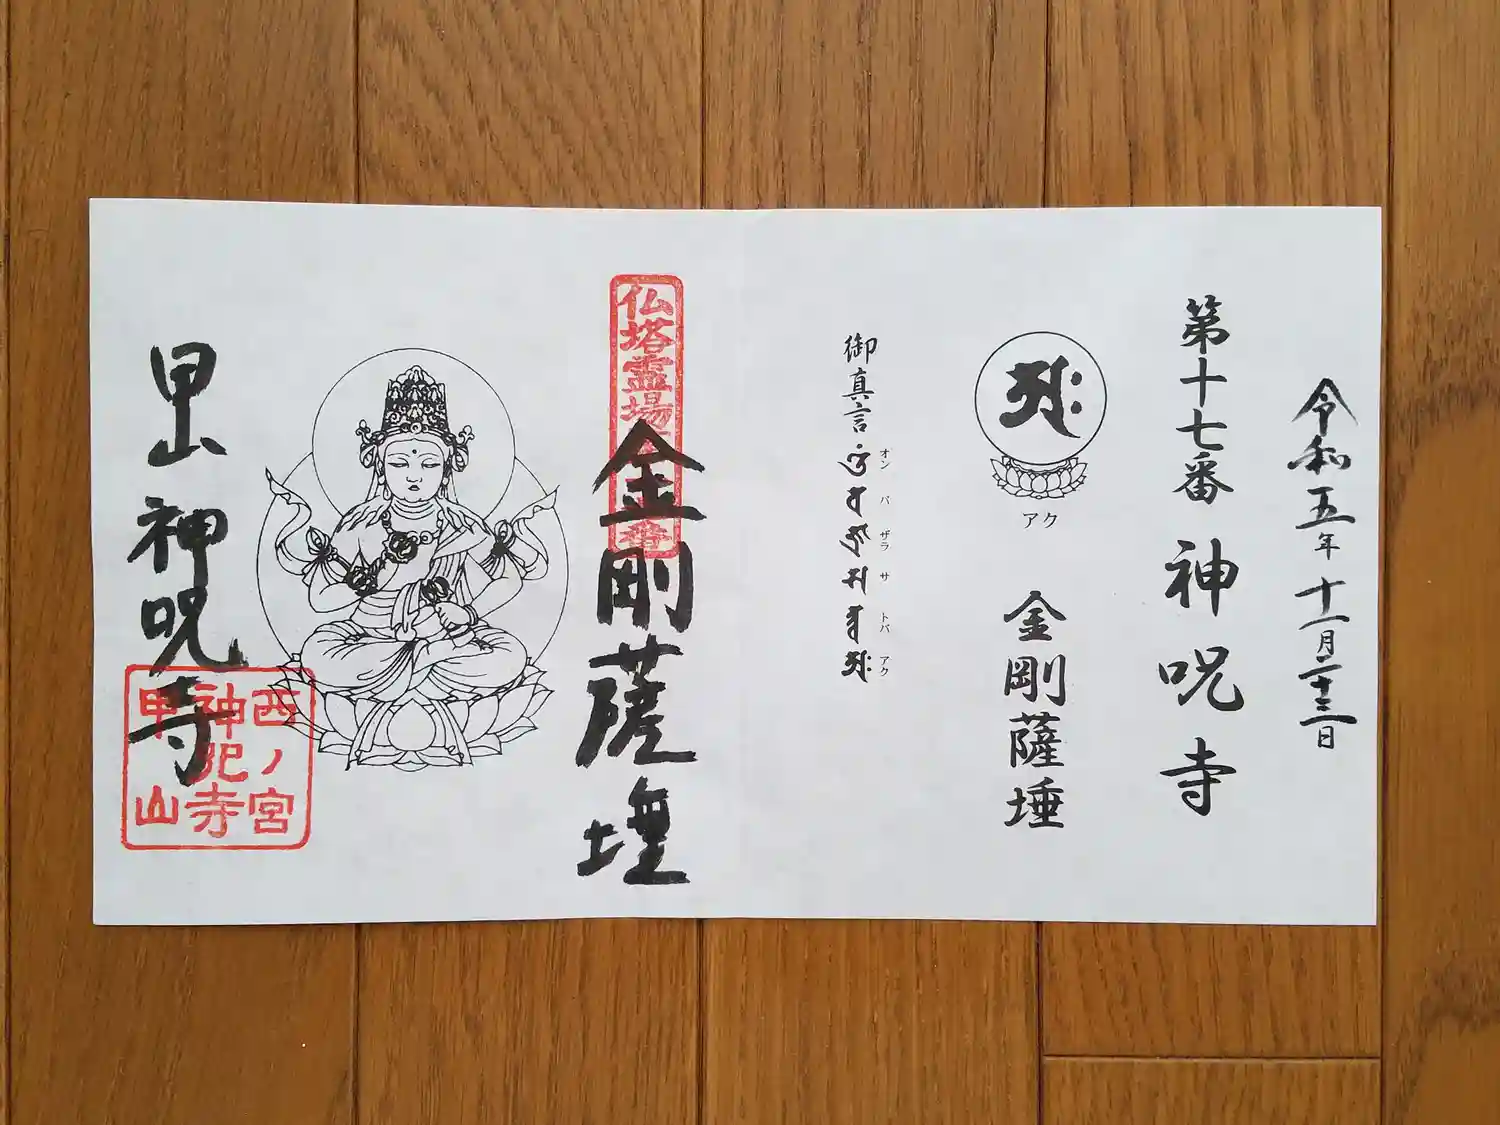 令和五年十一月二十三日
第十七番 神呪寺
アク
金剛薩埵
御真言
オン バ ザラ サ トバ アク
仏塔霊場
番
金剛薩埵
甲山 神呪寺
西ノ宮
神呪寺
甲山